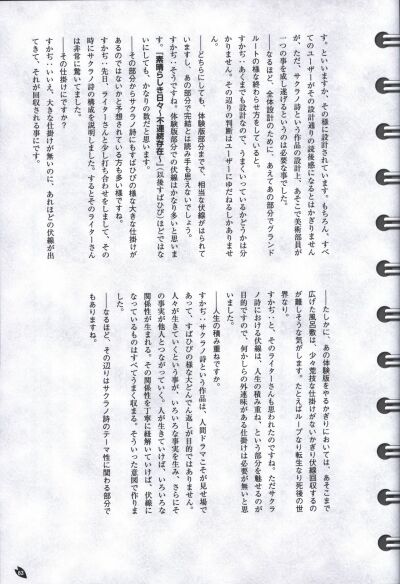 す、といいますか、その様に設計されています。もちろん、すべ
てのユーザーがその設計通りの読後感になるとはかぎりません
が、ただ、サクラノ詩という作品の設計上、あそこで美術部員が
一つの事を成し遂げるというのは必要な事でした。
――なるほど、全体設計のために、あえてあの部分でグランド
ルートの様な終わらせ方をしていると。
すかぢ：あくまでも設計なので、うまくいっているかどうかは分
かりません。その辺りの判断はユーザーにゆだねるしかありませ
ん。
――どちらにしても、体験版部分まで、相当な伏線がはられて
いますし、あの部分で完結とは読み手も思えないでしょう。
すかぢ：そうですね。体験版部分での伏線はかなり多いと思いま
す。『素晴らしき日々～不連続存在～』（以後すばひび）ほどではな
いにしても、かなりの数だと思います。
――その部分からサクラノ詩にもすばひびの様な大きな仕掛けが
あるのではないかと予想されている方も多い様ですね。
すかぢ：先日、ライターさんと少し打ち合わせをしまして、その
時にサクラノ詩の構成を説明しました。するとそのライターさん
は非常に驚いてました。
――その仕掛けにですか？
すかぢ：いいえ、大きな仕掛けが無いのに、あれほどの伏線が出
てきて、それが回収される事にです。
――たしかに、あの体験版をやるかぎりにおいては、あそこまで
広げた風呂敷は、少々荒技な仕掛けがないかぎり伏線回収するの
が難しそうな気がします。たとえばループなり転生なり死後の世
界なり。
すかぢ：と、そのライターさんも思われたのですね。ただサクラ
ノ詩における伏線は、人生の積み重ね、という部分を魅せるのが
目的ですので、何かしらの外連味がある仕掛けは必要が無いと思
いました。
――人生の積み重ねですか。
すかぢ：サクラノ詩という作品は、人間ドラマこそが見せ場で
あって、すばひびの様な大どんでん返しが目的ではありません。
人々が生きていくという事が、いろいろな事実を生み、さらにそ
の事実が他人とつながっていく。人が生きていけば、いろいろな
関係性が生まれる。その関係性を丁寧に紐解いていけば、伏線に
なっているものはすべてうまく収まる。そういった意図で作りま
した。
――なるほど、その辺りはサクラノ詩のテーマ性に関わる部分で
もありますね。